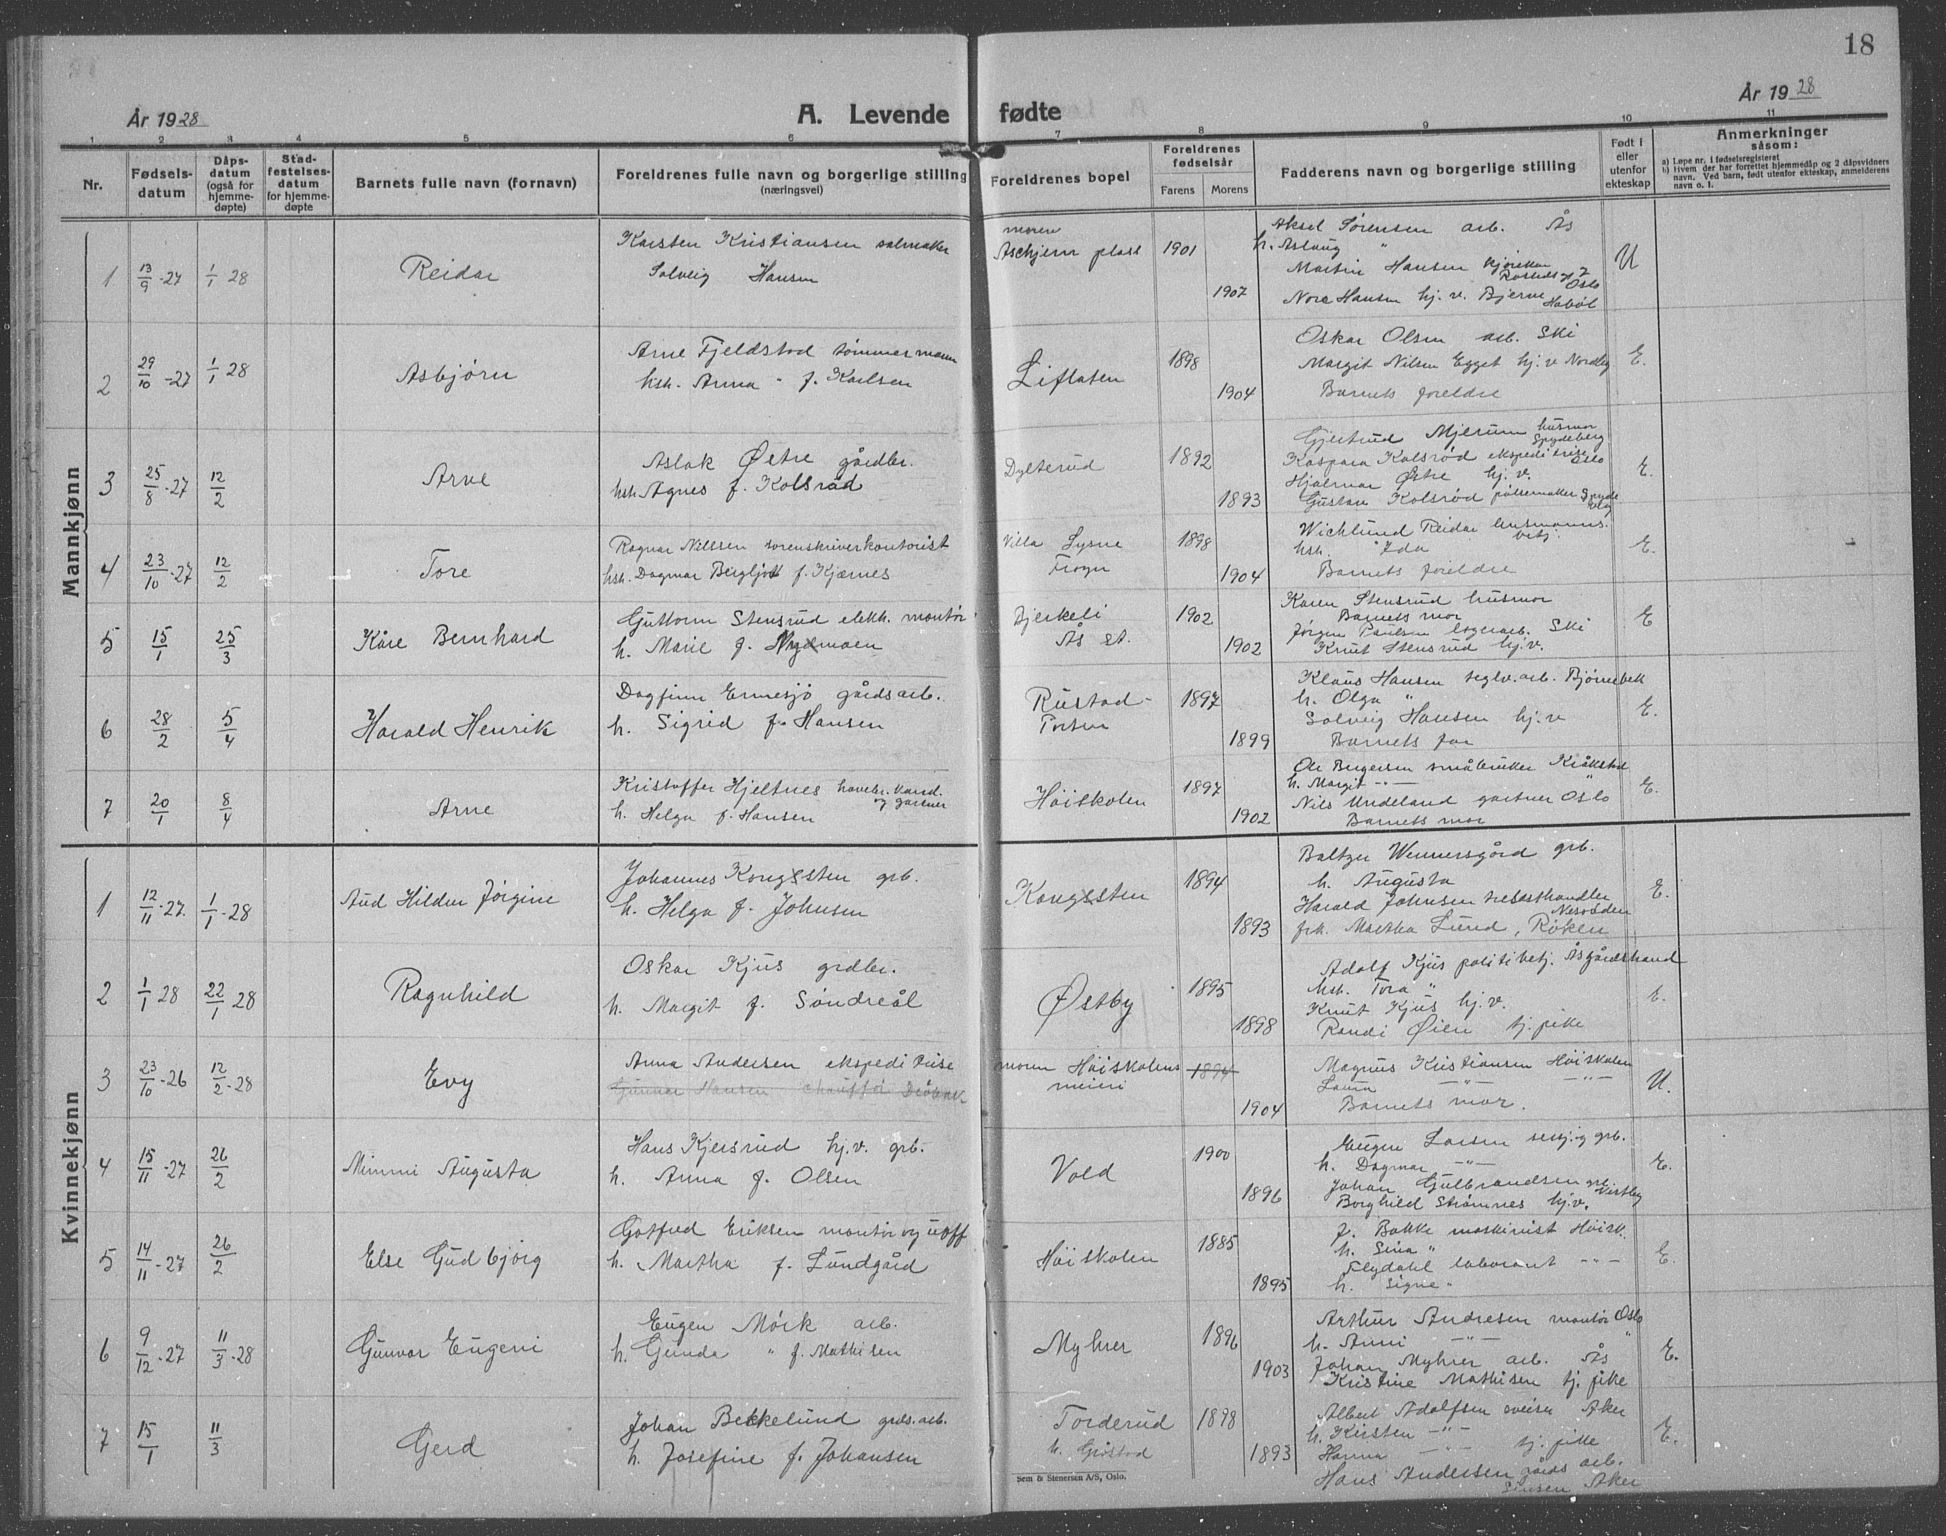 18
År 1928
A. Levende fødte
År 1928
1 2 3 4 5 6 7 8 9 10 11
Nr.
Fødsels-
datum
Dåps-
datum
(også for
hjemme-
døpte)
Stad-
festelses-
datum
for hjemme-
døpte
Barnets fulle navn (fornavn)
Foreldrenes fulle navn og borgerlige stilling
(næringsvei)
Foreldrenes bopel
Foreldrenes
fødselsår
Farens Morens
Fadderens navn og borgerlige stilling
Født i
eller
utenfor
ekteskap
Anmerkninger
såsom:
a) Løpe nr. i fødselsregisteret
b) Hvem der har forrettet hjemmedåp og 2 dåpsvidners
navn. Ved barn, født utenfor ekteskap, anmelderens
navn o. l.
Mannkjønn
1 13/9-27 1/1 28 Reidar
Karsten Kristiansen salmaker
Solveig Hansen
moren
Aschjem plass 1901
1907
Aksel Sørensen arb. Ås
h. Aslaug "
Martin Hansen Oslo
Nora Hansen hj. v. Bjerve Hobøl
U
2 29/10-27 1/1 28 Asbjørn
Arne Fjeldstad tømmermann
hsh. Anna " f. Karlsen
Liflaten 1898
1904
Oskar Olsen arb. Ski
Margit Nilsen Egget hj. v. Nordby
Barnets foreldre
E.
3 25/8-27 12/2 Arve
Aslak Østre gårdbr.
hsh. Agnes f. Kolsrød
Dylterud 1892
1893
Gjertrud Mjerum husmor Spydeberg
Kaspara Kolsrød ekspeditrise Oslo
Hjalmar Østre hj. v.
Gustav Kolsrød pølsemaker
E.
4 23/10-27 12/2 Tore
Ragnar Nilssen sorenskriverkontorist
hsh. Dagmar Bergljot f. Kjærnes
Villa Lysne
Frogn 1898
1904
Wichlund Reidar
hsh. " Ida
Barnets foreldre
E.
5 15/1 25/3 Kåre Bernhard
Guttorm Stensrud elektr. montør
h. Marie f. Nygmoen
Bjerkeli
Ås st. 1902
1902
Karen Stensrud husmor
Barnets mor
Jørgen Paulsen lagerarb. Ski
Knut Stensrud hj. v.
E
6 28/2 5/4 Harald Henrik
Dagfinn Ermesjø gårdsarb.
h. Sigrid f. Hansen
Rustad-
Porten 1897
1899
Klaus Hansen teglv. arb. Bjørnebek
h. Olga "
Solveig Hansen hj. v
Barnets far
E.
7 20/1 8/4 Arne
Kristoffer Hjeltnes havebr. kand.
og gartner
h. Helga f. Hansen
Høiskolen 1897
1902
Ole Birgersen småbruker Kråkstad
h. Margit -"- "
Nils Undeland gartner Oslo
Barnets mor
E.
Kvinnekjønn
1 12/11-27. 1/1-28 Aud Hildur Jørgine
Johannes Kongssten grb.
h. Helga f. Johnsen
Kongssten 1894
1893
Baltzer Wennersgård grb.
h. Augusta
Harald Johnsen trelasthandler
Nesodden
frk. Martha Lund, Røken
E.
2 1/1 28 22/1 28 Ragnhild
Oskar Kjus grdbr.
h. Margit f. Søndreål
Østby 1895
1898
Adolf Kjus politibetj. Åsgårdstrand
hsh. Tora "
Knut Kjus hj. v.
Randi Øien tj. pike
E.
3 23/10-26 12/2-28 Evy
Anna Andersen ekspeditrise
Gunnar Hansen chauffør Drøbak
moren Høiskolens
meieri 1894
1904
Magnus Kristiansen Høiskolen
Laura -"- -"-
Barnets mor.
U.
4 15/11-27 26/2 Mimmi Augusta
Hans Kjersrud hj. v. grb.
h. Anna f. Olsen
Vold 1900
1896
Eugen Larsen grb.
h. Dagmar -"-
Johan Gulbrandsen Vestby
Borghild Strømnes hj. v.
E.
5 14/11-27 26/2 Else Gudbjørg
Gotfred Eriksen montør og
h. Martha f. Lundgård
Høiskolen 1885
1895
J. Bakke maskinist Høisk.
h. Sina "
Flydahl laborant -"-
h. Signe "
E.
6 9/12-27 11/3-28 Gunvor Eugeni
Eugen Mørk arb.
h. Gunda " f. Mathisen
Myhrer 1896
1903
Arthur Andresen montør Oslo
h. Anni -"- "
Johan Myhrer arb. Ås
Kristine Mathisen tj. pike
E.
7 15/1 11/3 Gerd
Johan Bekkelund grds. arb.
h. Josefine f. Johansen
Torderud
h. Grøstad 1898
1893
Albert Adolfsen sveiser Aker
h. Kirsten -"-
Hanna -"- tj. pike
Hans Andersen gårds arb.
Sinsen Aker
E.
Sem & Stenersen A/S, Oslo.